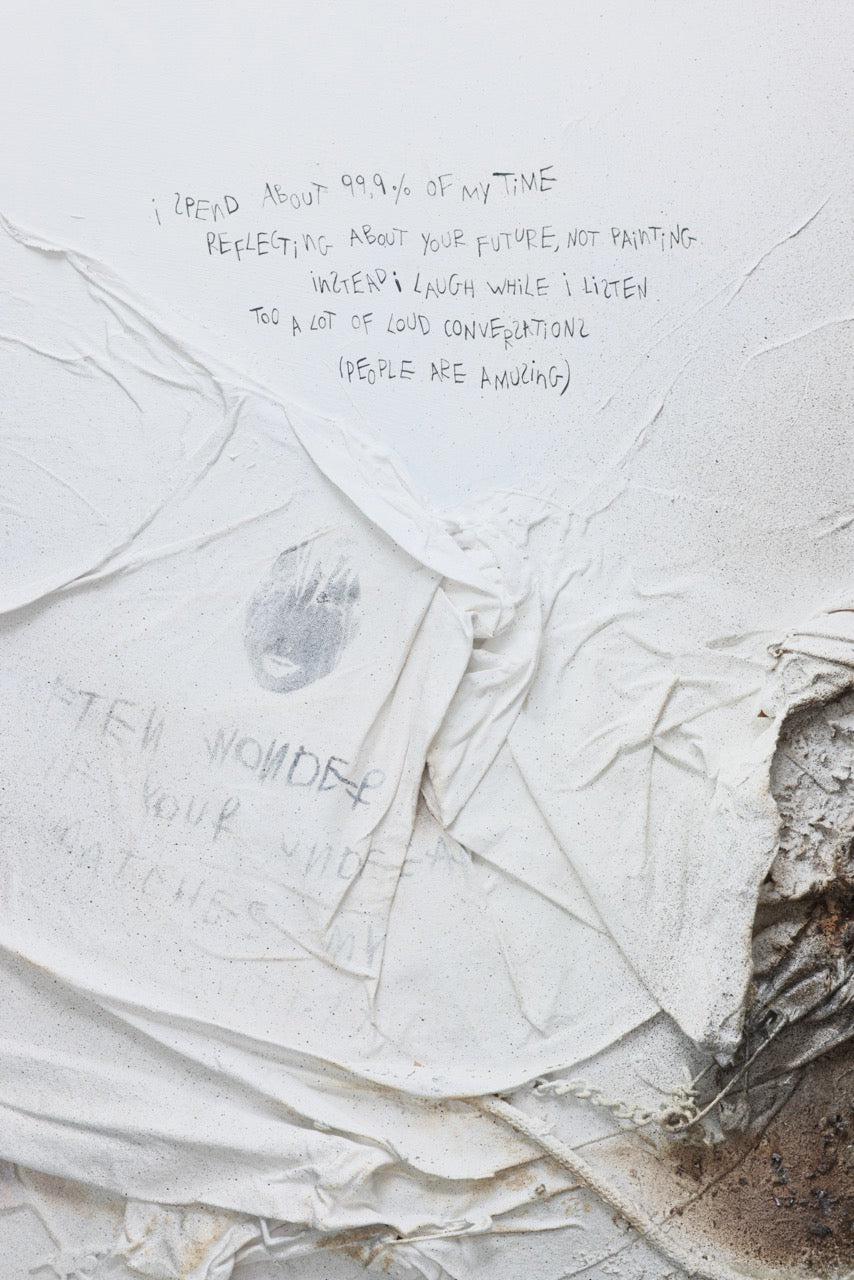 i SPEND ABOUT 99,9% OF MY TiME
REFLECTiNG ABOUT YOUR FUTURE, NOT PAiNTiNG
iNSTEAD i LAUGH WHiLE i LiSTEN
TOO A LOT OF LOUD CONVERSATIONS
(PEOPLE ARE AMUSiNG)
WONDER
IF YOUR
MATCHES MY